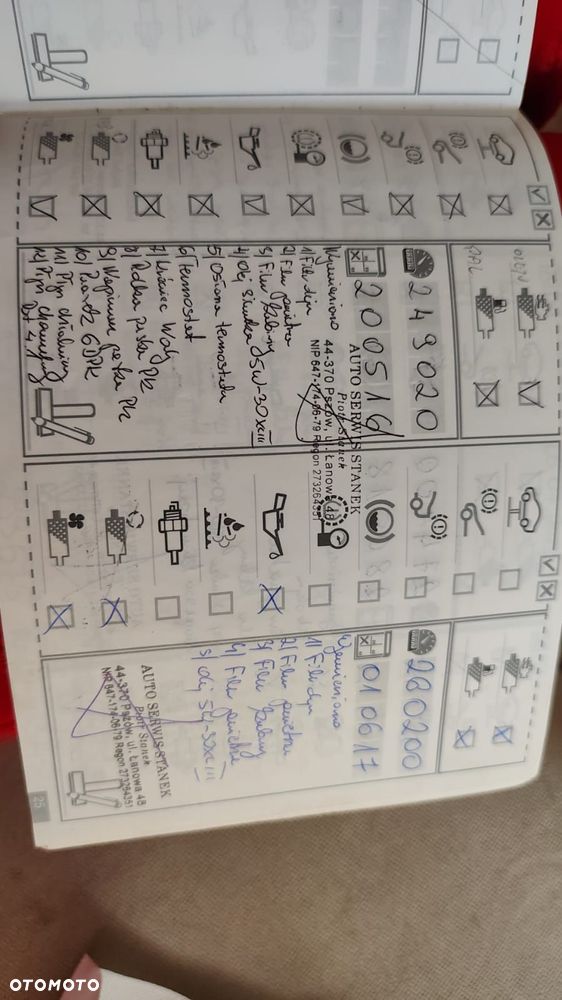 OLEJN
PAL
249020
200516
Wymieniono
1) Filtr olej
2) Filtr powietrza
3) Filtr kabiny
4) Olej Shell 5W-30 x III
5) Osłona termostatu
6) Termostat
7) Króciec Wody
8) Rolka paska PK
9) Napinacz paska PK
10) Pasek 6DPK
11) Płyn chłodniczy
12) Płyn hamulcowy Dot 4
AUTO SERWIS STANEK
Piotr Stanek
44-370 Pszów, ul. Łanowa 48
NIP 647-174-06-79 Regon 273264351
280200
010617
Wymieniono
1) Filtr olej
2) Filtr powietrza
3) Filtr kabiny
4) Filtr paliwa
5) Olej 5W-30 x III
AUTO SERWIS STANEK
Piotr Stanek
44-370 Pszów, ul. Łanowa 48
NIP 647-174-06-79 Regon 273264351
25
OTOMOTO